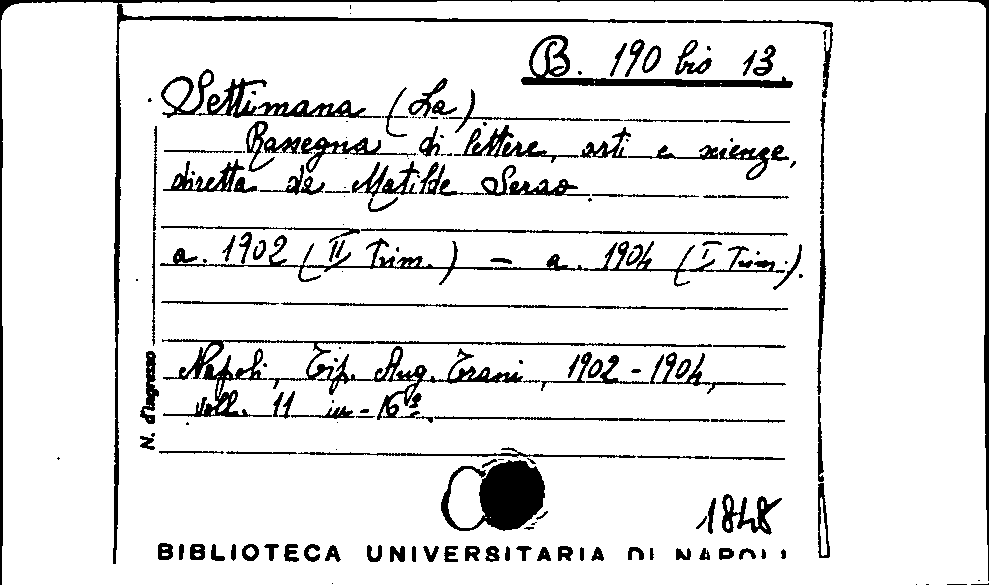 B. 190 bis 13.
Settimana (La)
Rassegna di lettere, arti e scienze,
diretta da Matilde Serao.
a. 1902 (II Trim.) – a. 1904 (I Trim.).
Napoli, Tip. Aug. Trani, 1902-1904,
voll. 11 in-16º.
N. d'ingresso
1848
BIBLIOTECA UNIVERSITARIA DI NAPOLI